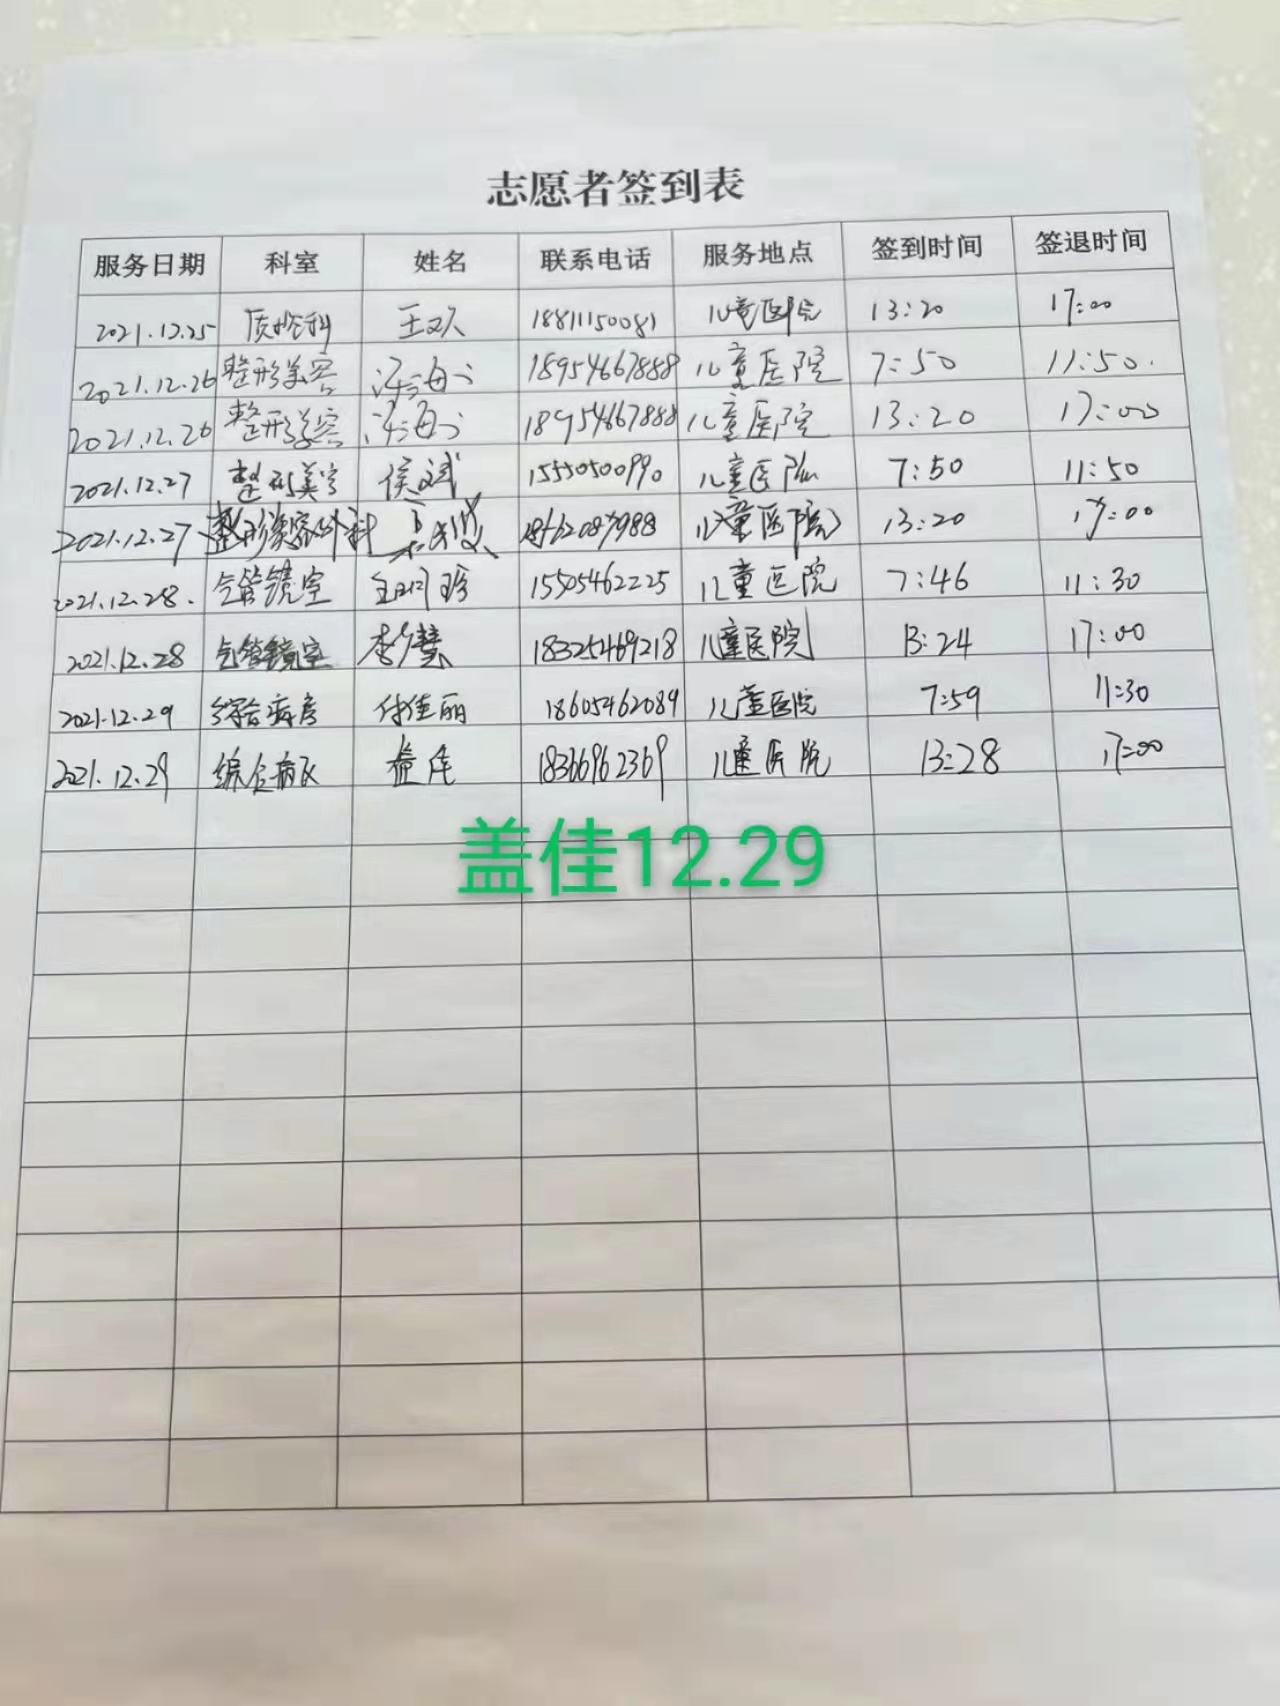 志愿者签到表
服务日期 科室 姓名 联系电话 服务地点 签到时间 签退时间
2021.12.25 质控科 18811150081 儿童医院 13:20 17:00
2021.12.26 整形美容 18954667888 儿童医院 7:50 11:50.
2021.12.26 整形美容 18954667888 儿童医院 13:20 17:00
2021.12.27 整形美容 侯斌 15550500990 儿童医院 7:50 11:50
2021.12.27 整形美容外科 儿童医院 13:20 17:00
2021.12.28. 气管镜室 15505462225 儿童医院 7:46 11:30
2021.12.28 气管镜室 李慧 18325469218 儿童医院 13:24 17:00
2021.12.29 综合病房 付佳丽 18605462089 儿童医院 7:59 11:30
2021.12.29 综合病区 盖佳 18366962369 儿童医院 13:28 17:00
盖佳12.29